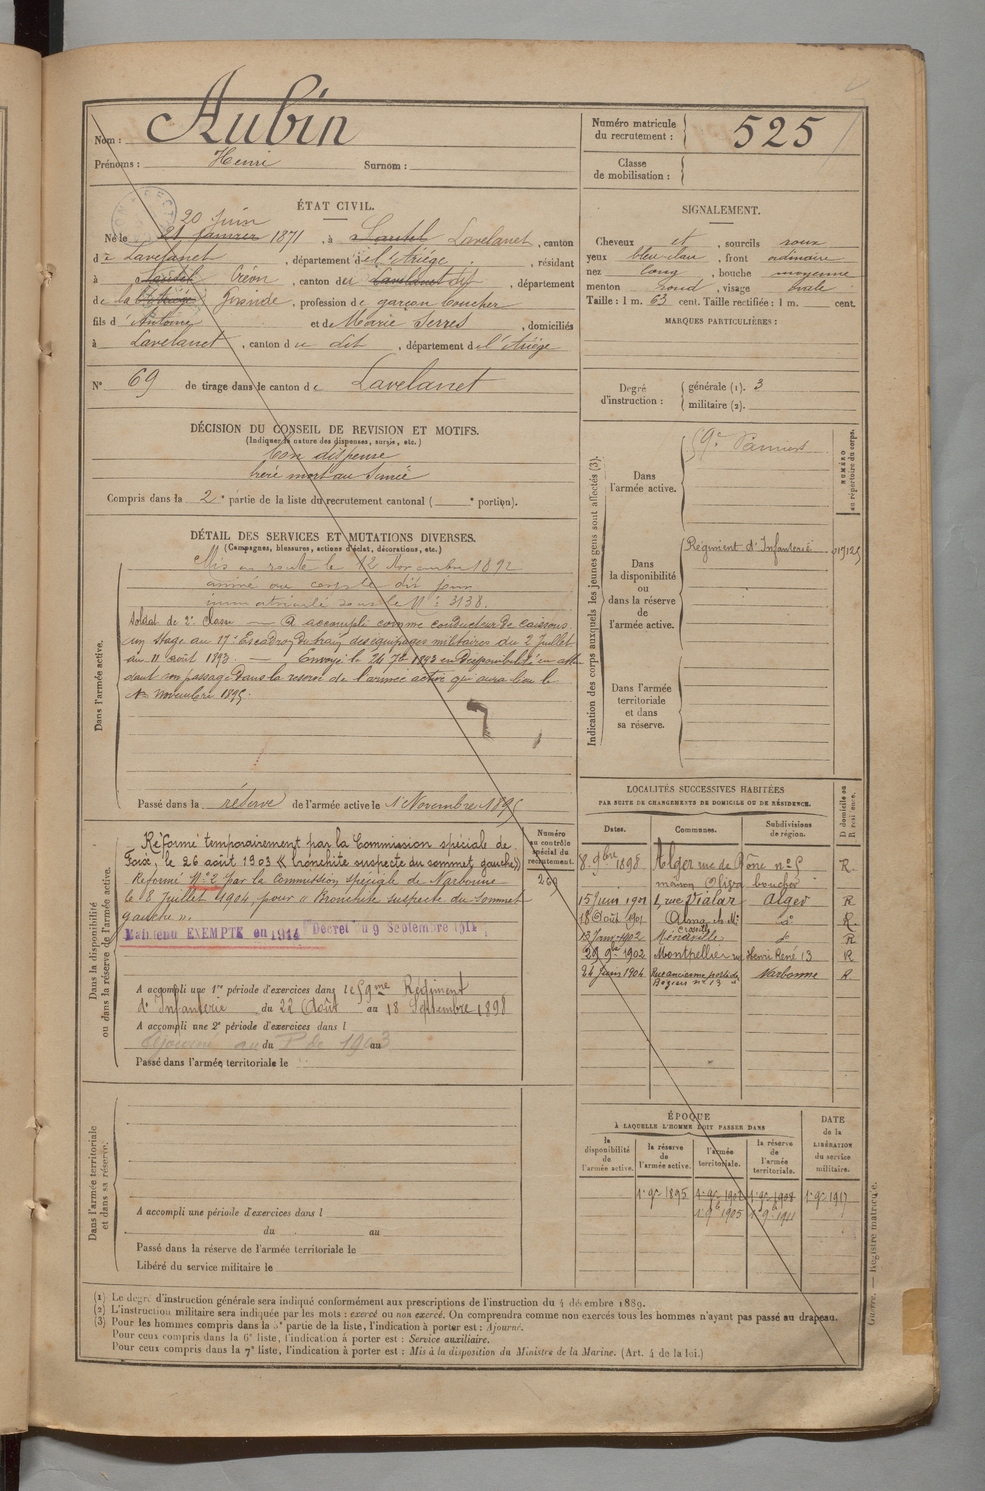 Nom : Aubin
Prénoms : Henri Surnom :
ÉTAT CIVIL.
20 Juin
Né le 21 Janvier 1871, à Sautel Lavelanet, canton
de Lavelanet, département de l'Ariège, résidant
à Sautel Créon, canton de Lavelanet dit, département
de la Gironde, profession de garçon boucher
fils d'Antoine et de Marie Serres, domiciliés
à Lavelanet, canton du dit, département de l'Ariège
N° 69 de tirage dans le canton de Lavelanet
DÉCISION DU CONSEIL DE REVISION ET MOTIFS.
(Indiquer la nature des dispenses, sursis, etc.)
Bon dispensé
frère mort au Service
Compris dans la 2e partie de la liste du recrutement cantonal ( e portion).
DÉTAIL DES SERVICES ET MUTATIONS DIVERSES.
(Campagnes, blessures, actions d'éclat, décorations, etc.)
Dans l'armée active.
Mis en route le 12 Novembre 1892
arrivé au corps le dit jour
immatriculé sous le N° : 3138.
Soldat de 2e classe — A accompli comme conducteur de caissons
un stage au 17e Escadron du train des équipages militaires du 2 Juillet
au 11 août 1893. — Envoyé le 24 7bre 1893 en disponibilité en atten
dant son passage dans la réserve de l'armée active qui aura lieu le
1er novembre 1895.
Passé dans la réserve de l'armée active le 1er Novembre 1895
Dans la disponibilité
ou dans la réserve de l'armée active.
Numéro
au contrôle
spécial du
recrutement.
Réformé temporairement par la Commission spéciale de
Foix, le 26 août 1903 « bronchite suspecte du sommet gauche »
Réformé N° 2 par la Commission spéciale de Narbonne
le 8 Juillet 1904 pour « Bronchite suspecte du sommet
gauche ».
Maintenu EXEMPTE en 1914 Décret du 9 Septembre 1914
A accompli une 1re période d'exercices dans le 59me Régiment
d'Infanterie du 22 Août au 18 Septembre 1898
A accompli une 2e période d'exercices dans l
Ajourné au du P de 1903 au
Passé dans l'armée territoriale le
Dans l'armée territoriale
et dans sa réserve.
A accompli une période d'exercices dans l
du au
Passé dans la réserve de l'armée territoriale le
Libéré du service militaire le
Numéro matricule
du recrutement : 525
Classe
de mobilisation :
SIGNALEMENT.
Cheveux et, sourcils roux
yeux bleu clair, front ordinaire
nez long, bouche moyenne
menton rond, visage ovale
Taille : 1 m. 63 cent. Taille rectifiée : 1 m. cent.
MARQUES PARTICULIÈRES :
Degré
d'instruction :
générale (1). 3
militaire (2).
Indication des corps auxquels les jeunes gens sont affectés (3).
NUMÉRO
au répertoire du corps.
Dans
l'armée active.
59e Pamiers
Dans
la disponibilité
ou
dans la réserve
de
l'armée active.
Régiment d'Infanterie
Dans l'armée
territoriale
et dans
sa réserve.
LOCALITÉS SUCCESSIVES HABITÉES
PAR SUITE DE CHANGEMENTS DE DOMICILE OU DE RÉSIDENCE.
D domicile ou
R résidence.
Dates. Communes. Subdivisions
de région.
8 9bre 1898 Alger rue de Bône n° 5 R
maison Oliva boucher
15 Juin 1901 rue Vialar Alger R
18 Août 1901 Alma d° R
13 Janv. 1902 Ménerville d° R
29 9bre 1902 Montpellier rue Henri René 13 R
24 Juin 1904 Rue ancienne porte de Narbonne R
Béziers n° 13
ÉPOQUE
À LAQUELLE L'HOMME DOIT PASSER DANS
DATE
de la
LIBÉRATION
du service
militaire.
la
disponibilité
de
l'armée active.
la réserve
de
l'armée active.
l'armée
territoriale.
la réserve
de
l'armée
territoriale.
1er 9bre 1895 1er 9bre 1902 1er 9bre 1908 1er 9bre 1917
1er 9bre 1905 1er 9bre 1911
(1) Le degré d'instruction générale sera indiqué conformément aux prescriptions de l'instruction du 4 décembre 1889.
(2) L'instruction militaire sera indiquée par les mots : exercé ou non exercé. On comprendra comme non exercés tous les hommes n'ayant pas passé au drapeau.
(3) Pour les hommes compris dans la 5e partie de la liste, l'indication à porter est : Ajourné.
Pour ceux compris dans la 6e liste, l'indication à porter est : Service auxiliaire.
Pour ceux compris dans la 7e liste, l'indication à porter est : Mis à la disposition du Ministre de la Marine. (Art. 4 de la loi.)
Guerre. — Registre matricule.